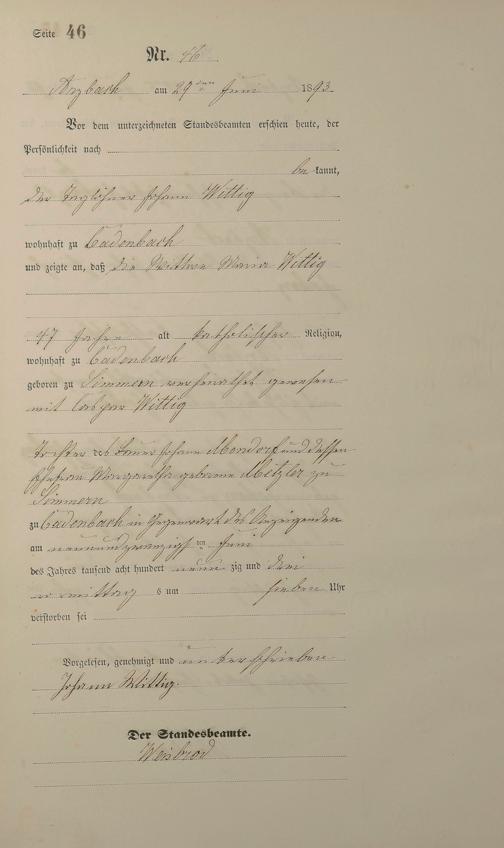 Seite 46
Nr. 46
Arzbach am 29 ten Juni 1893
Vor dem unterzeichneten Standesbeamten erschien heute, der
Persönlichkeit nach
be kannt,
der Taglöhner Johann Wittig
wohnhaft zu Cadenbach
und zeigte an, daß die Wittwe Maria Wittig
47 Jahre alt katholischer Religion,
wohnhaft zu Cadenbach
geboren zu Simmern verheirathet gewesen
mit Caspar Wittig
Tochter des Bauer Johann Mondorf und dessen
Ehefrau Margaretha geborene Metzler zu
Simmern
zu Cadenbach in Gegenwart des Anzeigenden
am neunundzwanzigsten Juni
des Jahres tausend acht hundert neun zig und drei
mittag s um sieben Uhr
verstorben sei
Vorgelesen, genehmigt und unterschrieben
Johann Wittig.
Der Standesbeamte.
Weisbrod